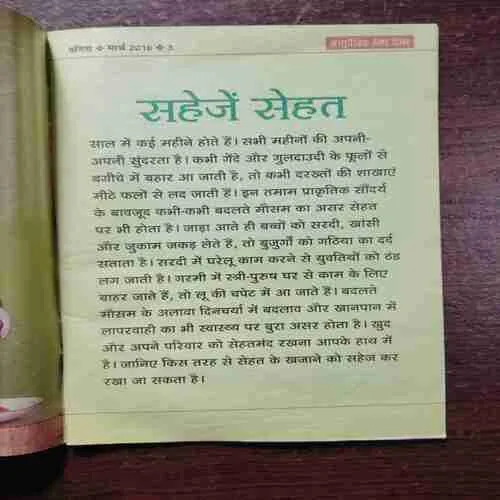 मार्च 2016 ❖ 3
सहेजें सेहत
साल में कई महीने होते हैं। सभी महीनों की अपनी-
अपनी सुंदरता है। कभी गेंदे और गुलदाउदी के फूलों से
बगीचे में बहार आ जाती है, तो कभी दरख्तों की शाखाएं
मीठे फलों से लद जाती हैं। इन तमाम प्राकृतिक सौंदर्य
के बावजूद कभी-कभी बदलते मौसम का असर सेहत
पर भी होता है। जाड़ा आते ही बच्चों को सरदी, खांसी
और जुकाम जकड़ लेते हैं, तो बुजुर्गों को गठिया का दर्द
सताता है। सरदी में घरेलू काम करने से युवतियों को ठंड
लग जाती है। गरमी में स्त्री-पुरुष घर से काम के लिए
बाहर जाते हैं, तो लू की चपेट में आ जाते हैं। बदलते
मौसम के अलावा दिनचर्या में बदलाव और खानपान में
लापरवाही का भी स्वास्थ्य पर बुरा असर होता है। खुद
और अपने परिवार को सेहतमंद रखना आपके हाथ में
है। जानिए किस तरह से सेहत के खजाने को सहेज कर
रखा जा सकता है।